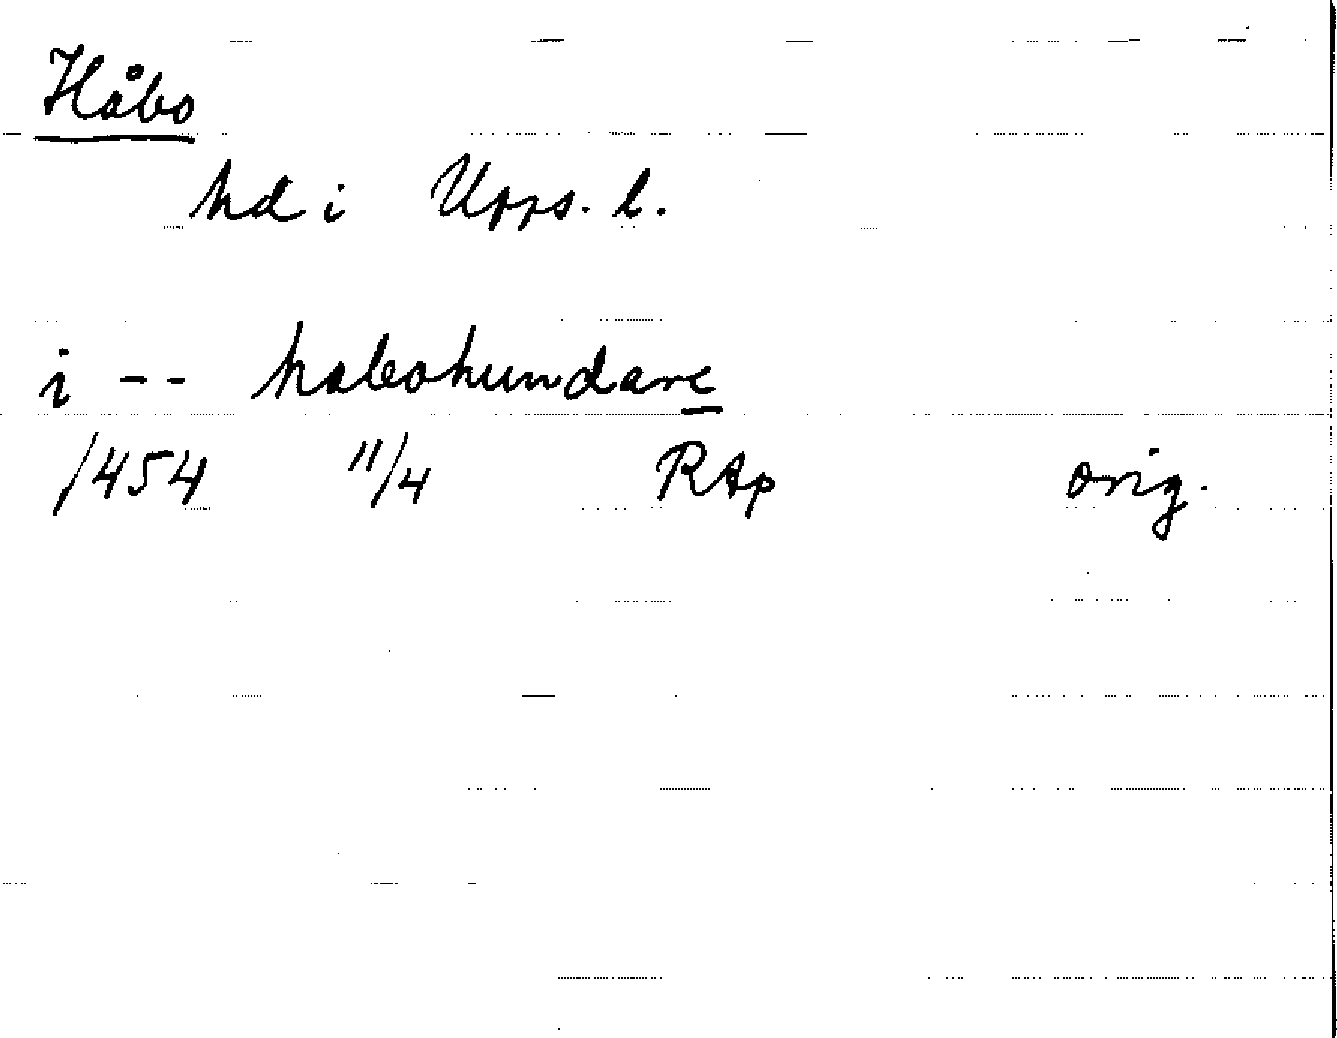 Håbo
hd i Upps. l.
i -- habohundare
1454 11/4 RAp orig.